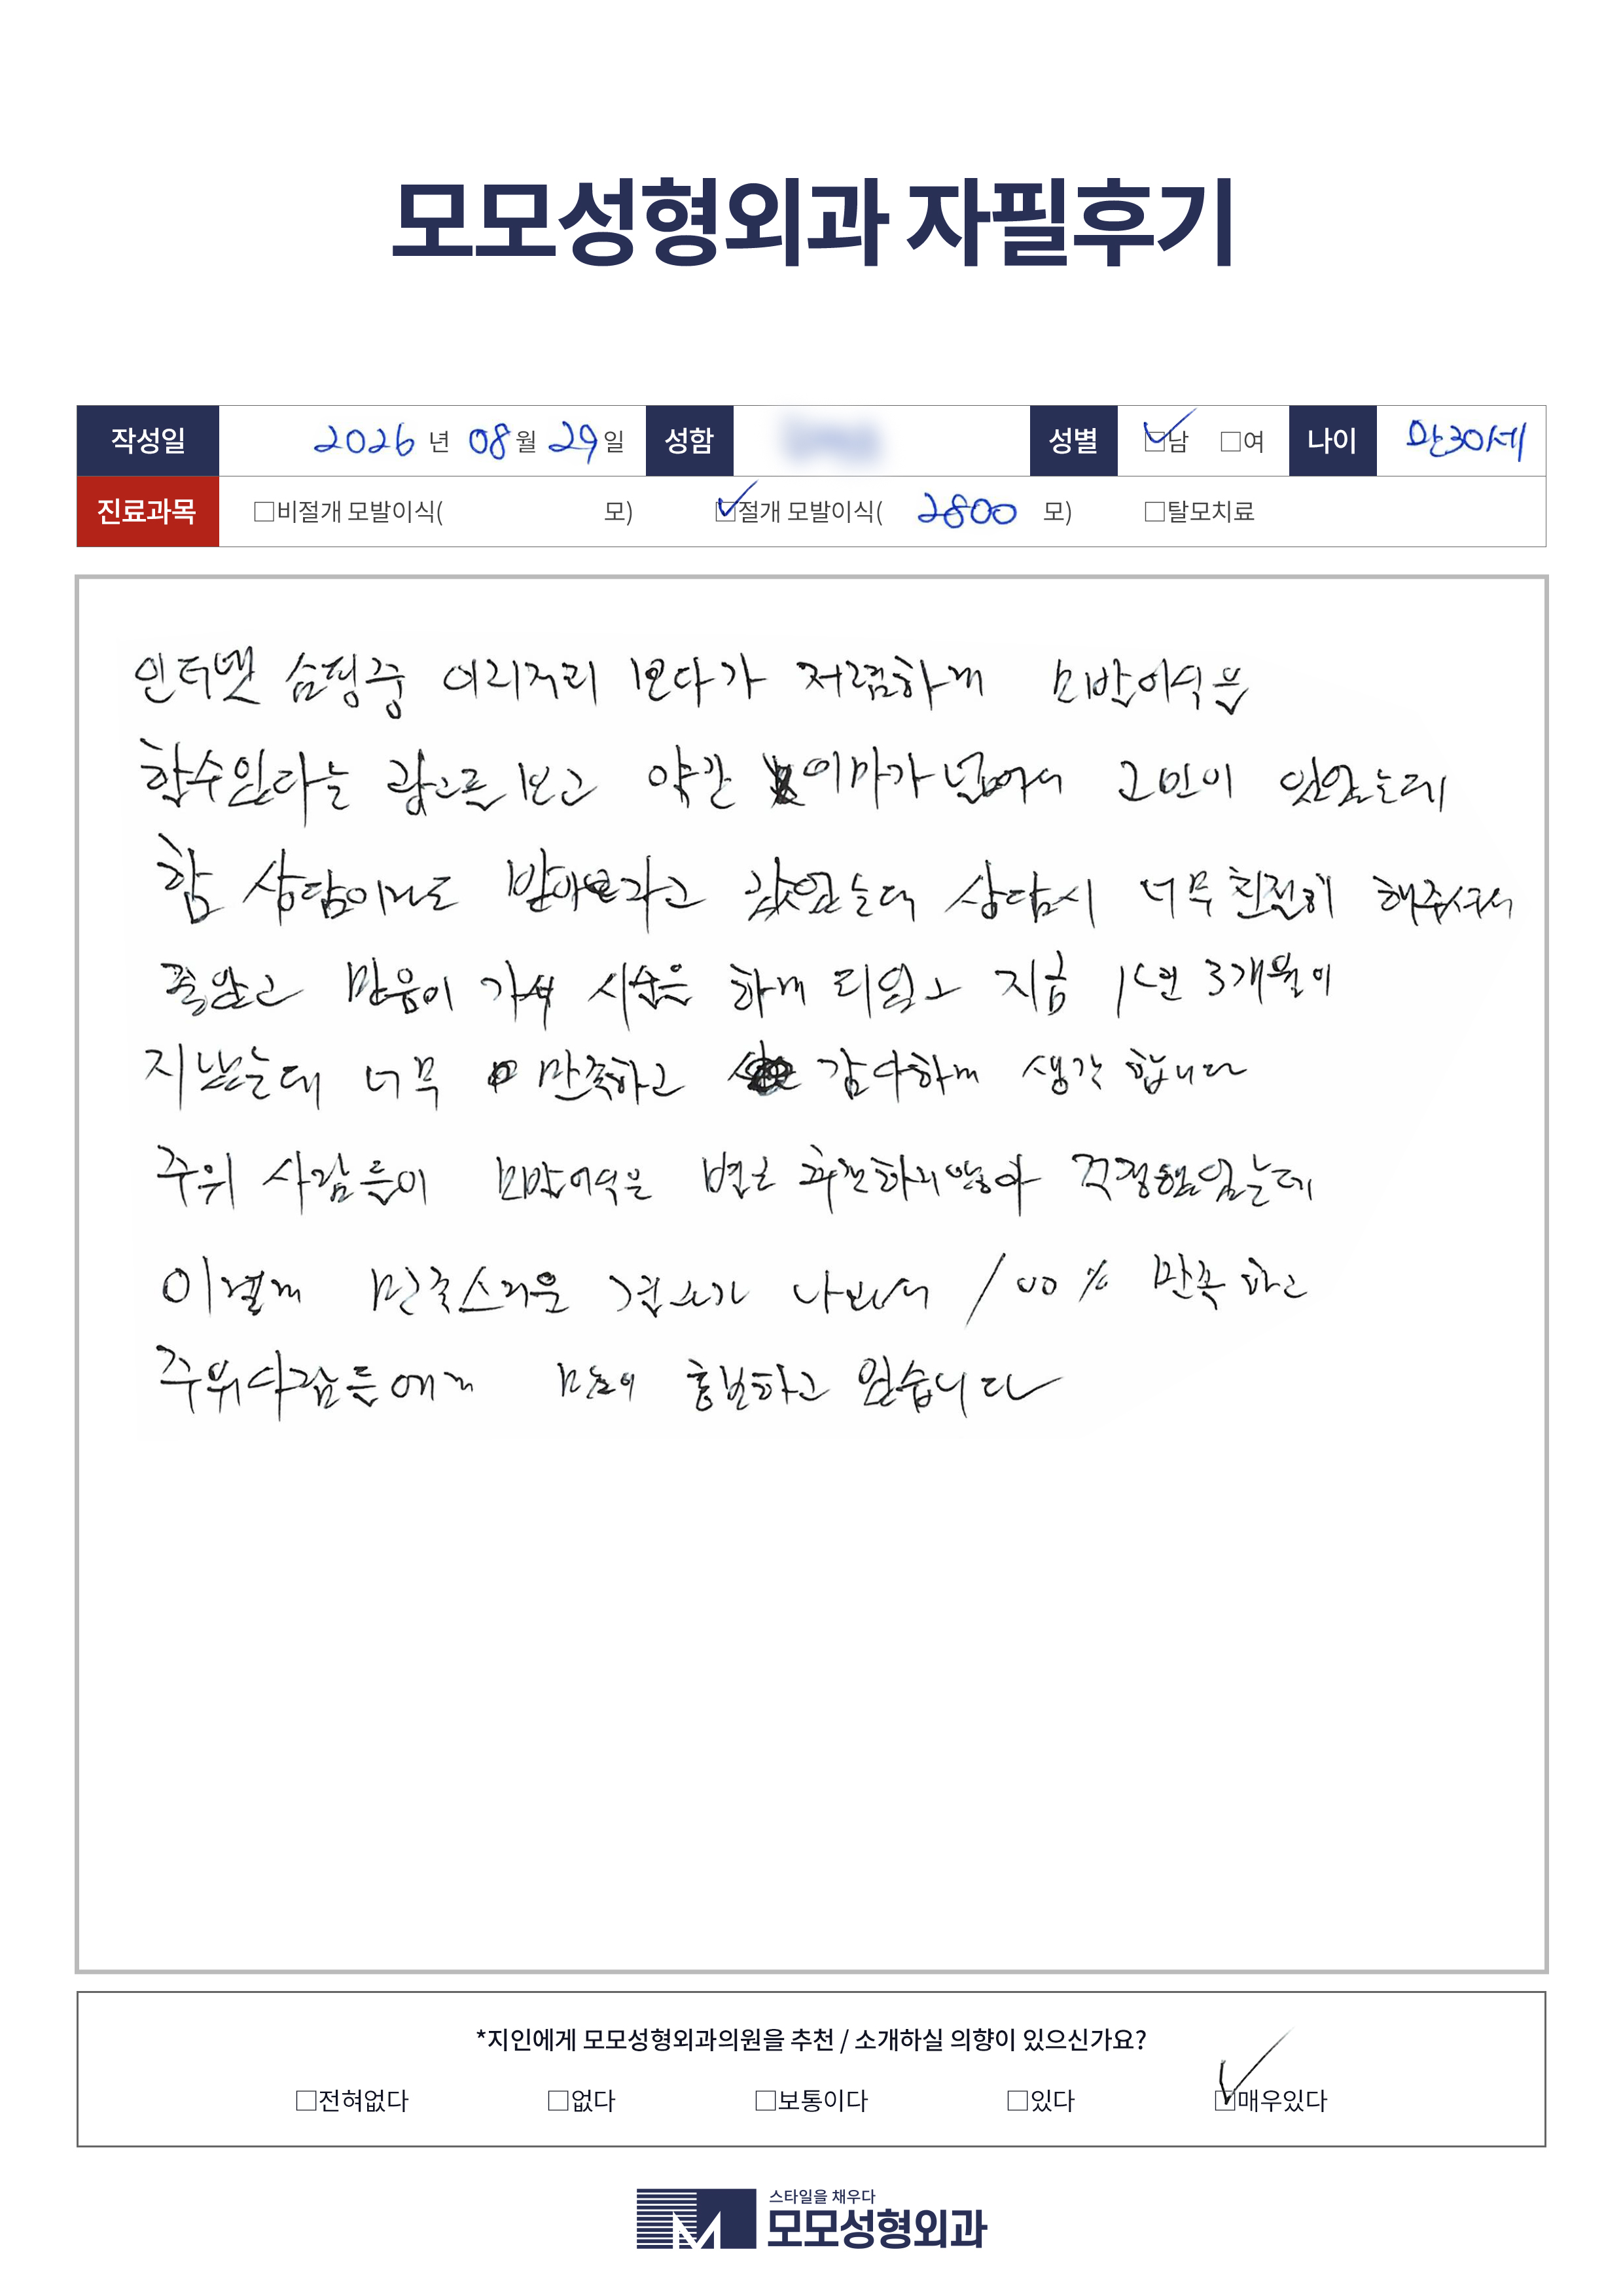 모모성형외과 자필후기
작성일 2026 년 08 월 29 일 성함 성별 ☑남 □여 나이 만30세
진료과목 □비절개 모발이식( 모) ☑절개 모발이식( 2800 모) □탈모치료
인터넷 쇼핑중 이리저리 보다가 저렴하게 모발이식을
할수있다는 광고를 보고 약간 이마가 넓어서 고민이 있었는데
함 상담이나도 받아보라고 갔었는데 상담시 너무 친절히 해주셔서
좋았고 믿음이 가서 시술은 하게 되었고 지금 1년 3개월이
지났는데 너무 만족하고 감사하게 생각 합니다
주위 사람들이 모발이식은 별로 추천하지않아 걱정했었는데
이렇게 만족스러운 결과가 나와서 100% 만족하고
주위사람들에게 많이 홍보하고 있습니다
*지인에게 모모성형외과의원을 추천 / 소개하실 의향이 있으신가요?
□전혀없다 □없다 □보통이다 □있다 ☑매우있다
스타일을 채우다
모모성형외과